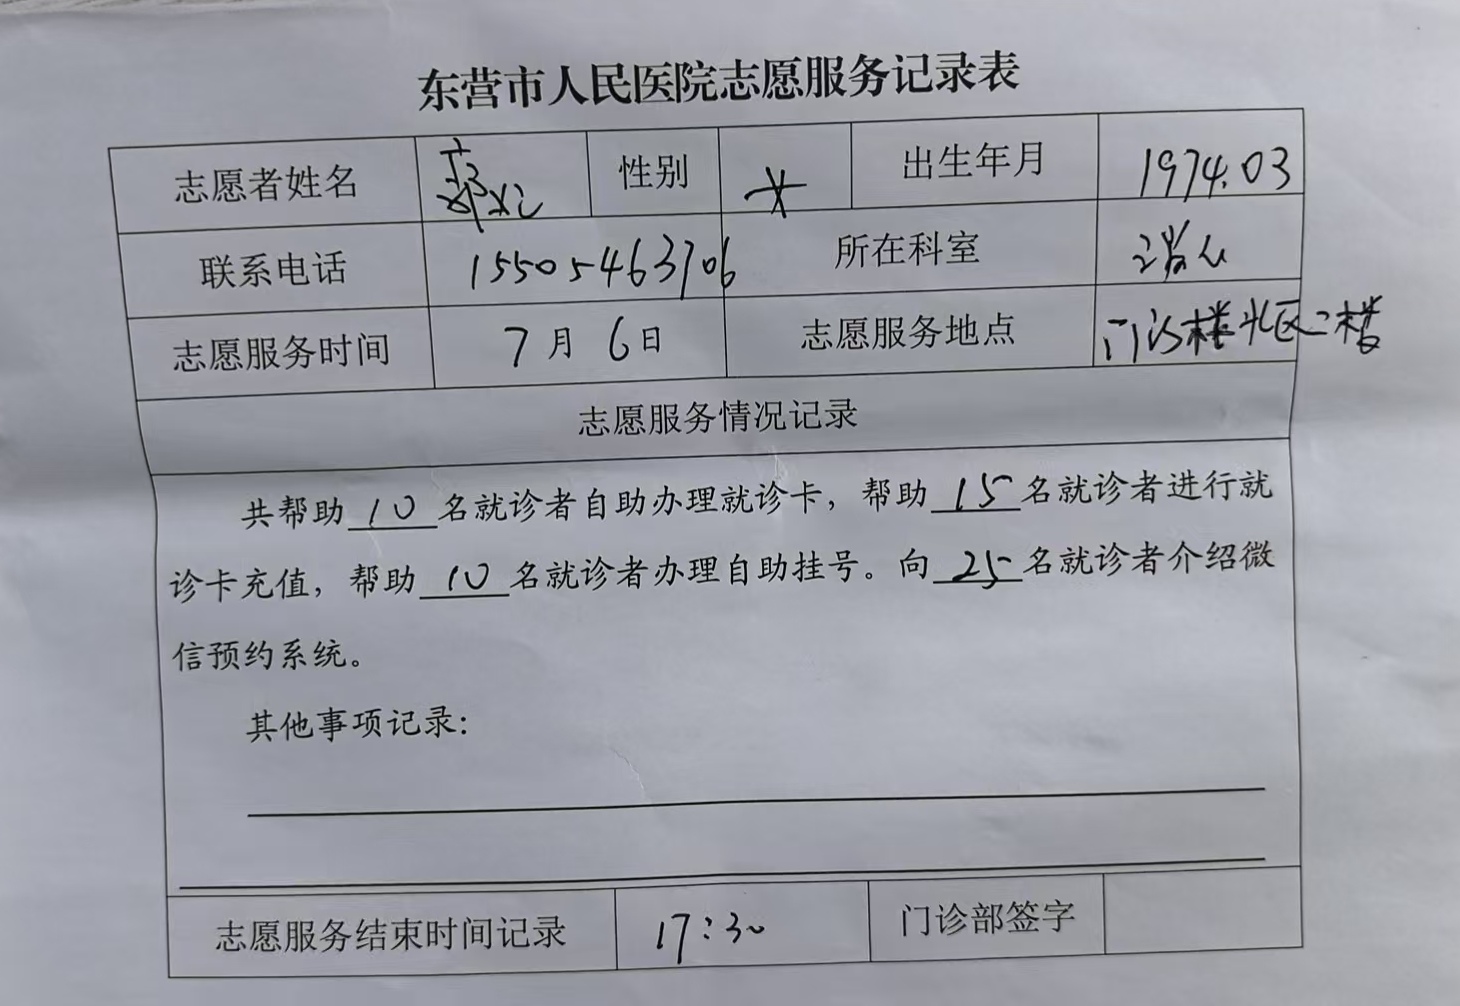 东营市人民医院志愿服务记录表
志愿者姓名 性别 女 出生年月 1974.03
联系电话 15505463706 所在科室 消化
志愿服务时间 7月6日 志愿服务地点 门诊楼北区二楼
志愿服务情况记录
共帮助10名就诊者自助办理就诊卡，帮助15名就诊者进行就
诊卡充值，帮助10名就诊者办理自助挂号。向25名就诊者介绍微
信预约系统。
其他事项记录：
志愿服务结束时间记录 17:30 门诊部签字